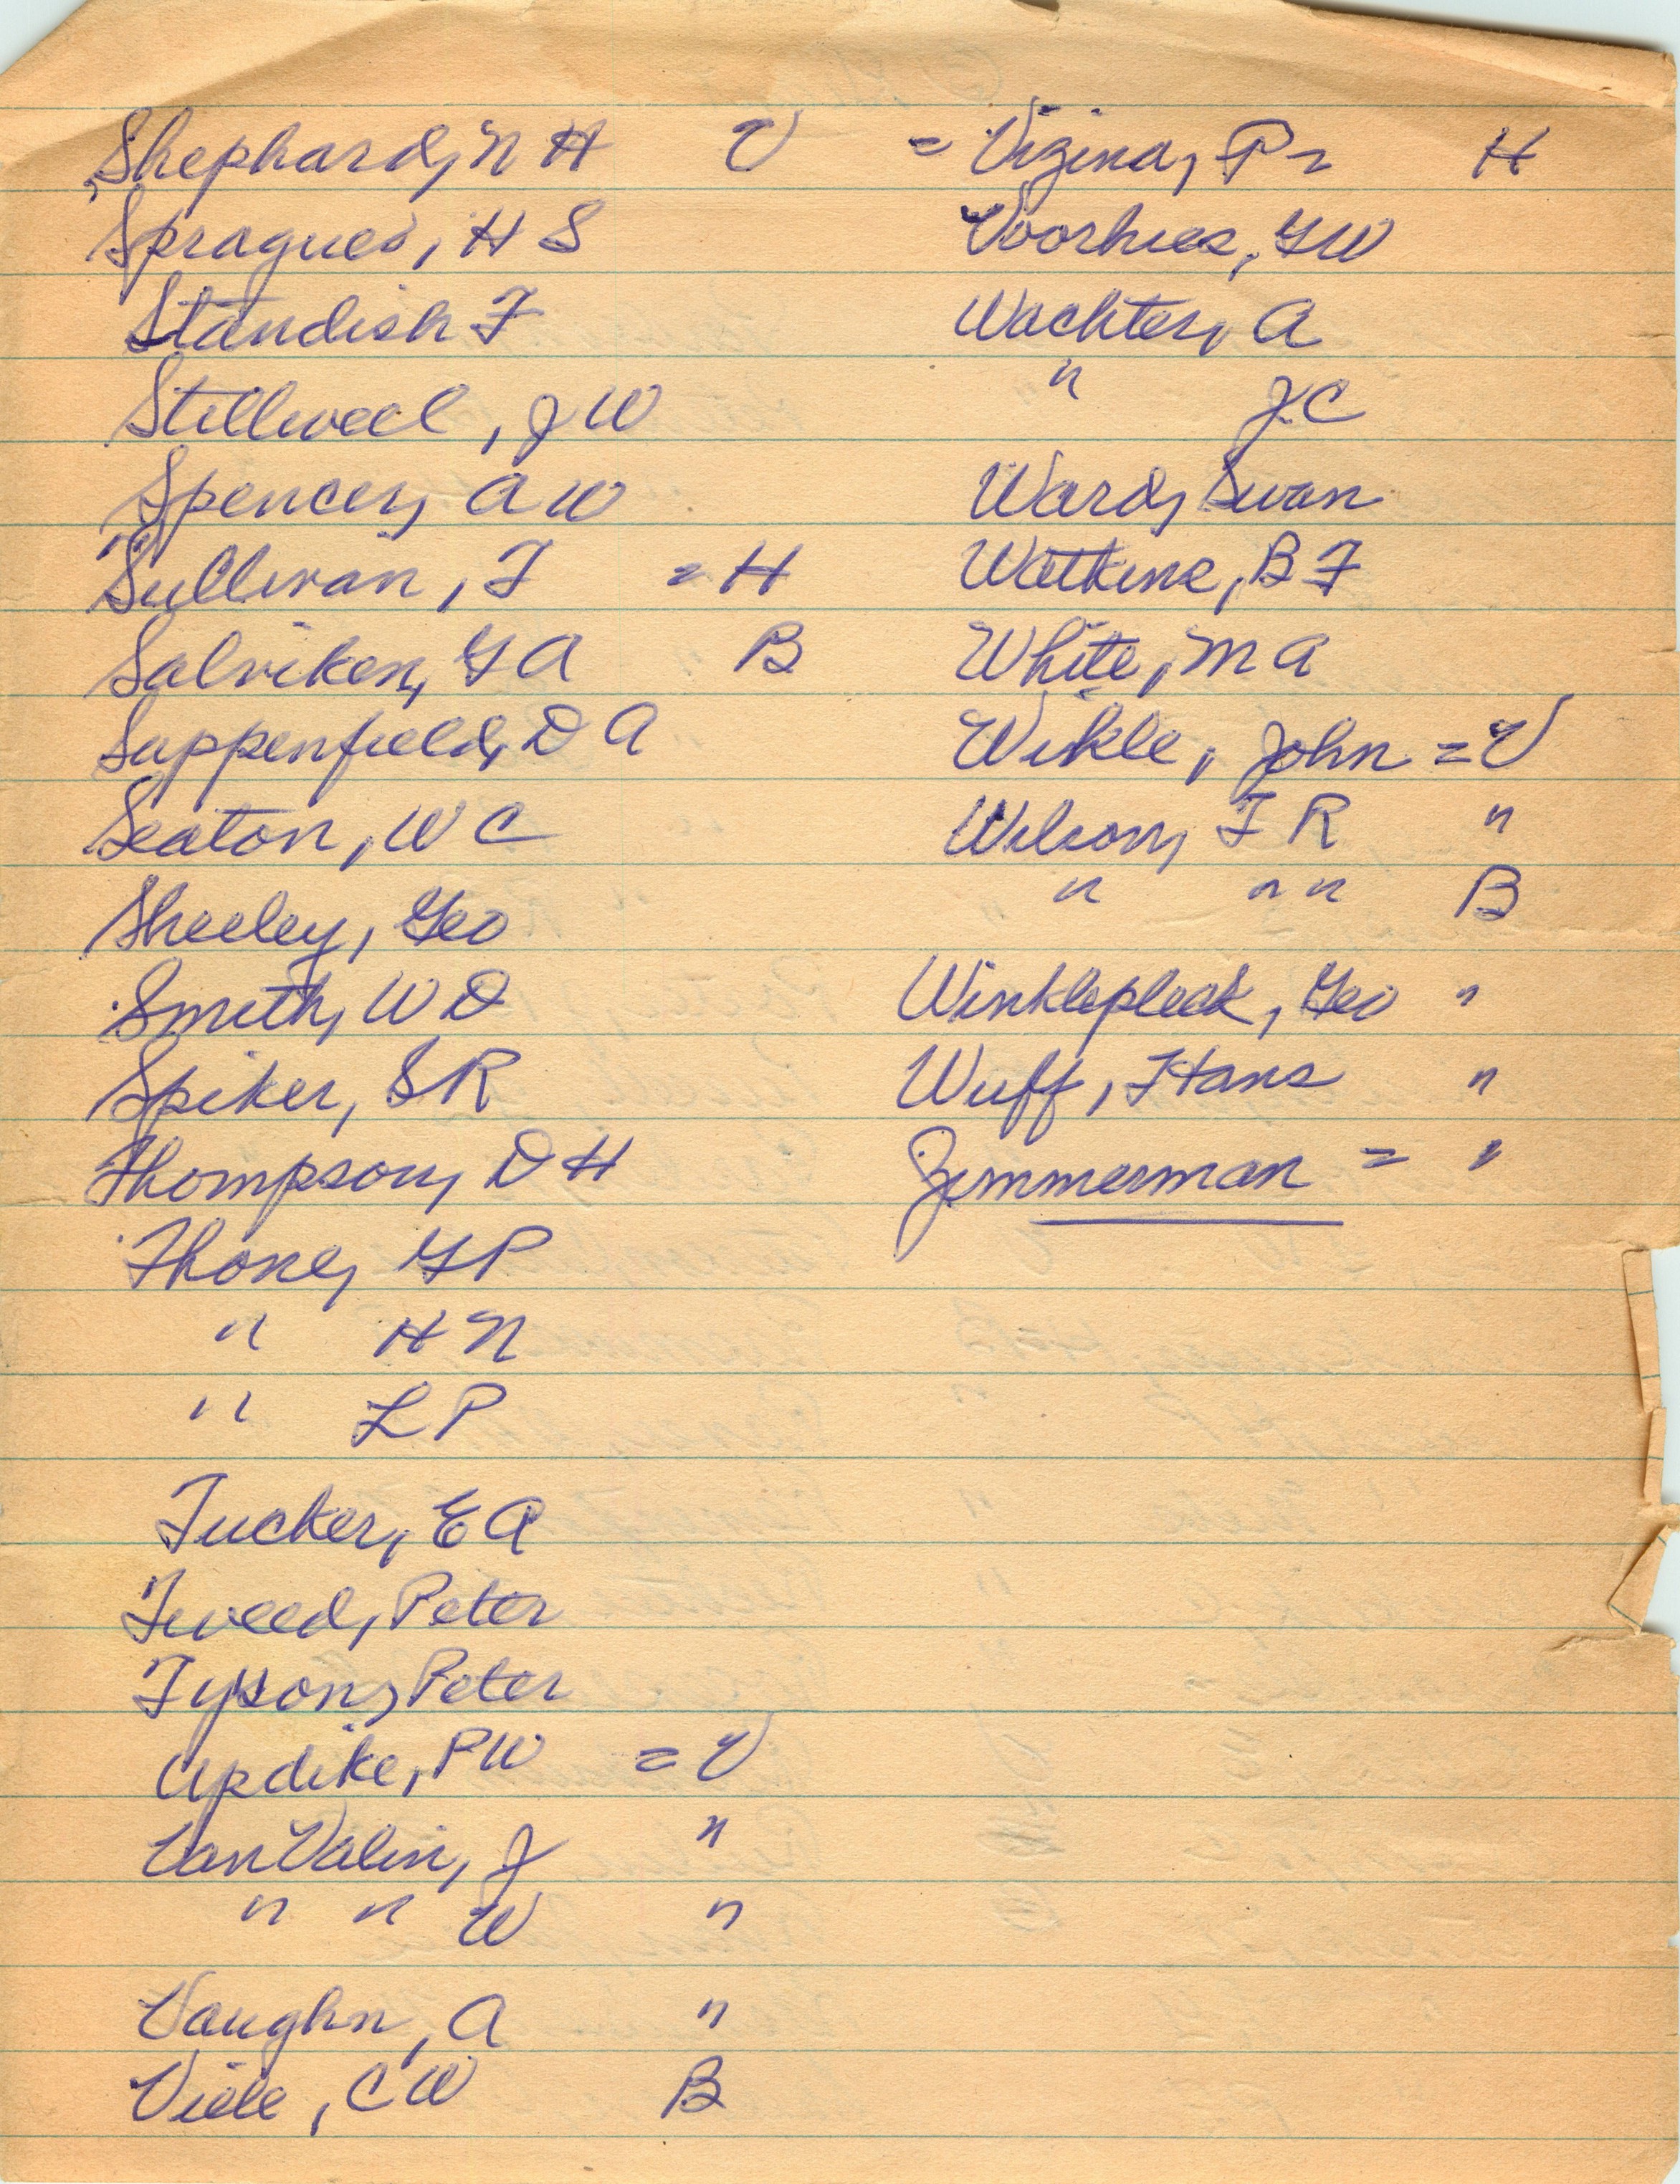 Shephard, N H V
Spragues, H S
Standish F
Stillwell, J W
Spencer, A W
Sullivan, T = H
Salviken, G A B
Suppenfield, D A
Seaton, W C
Sheeley, Geo
Smith, W D
Spiker, S R
Thompson, D H
Thone, G P
" H N
" L P
Tucker, E A
Tweed, Peter
Tyson, Peter
Updike, P W = V
Van Valin, J "
" " W "
Vaughn, A "
Viele, C W B
= Vizina, P = H
Voorhies, G W
Wachter, A
" J C
Ward, Swan
Watkins, B F
White, M A
Wikle, John = V
Wilson, F R "
" " " B
Winklepleck, Geo "
Wuff, Hans "
Zimmerman = "